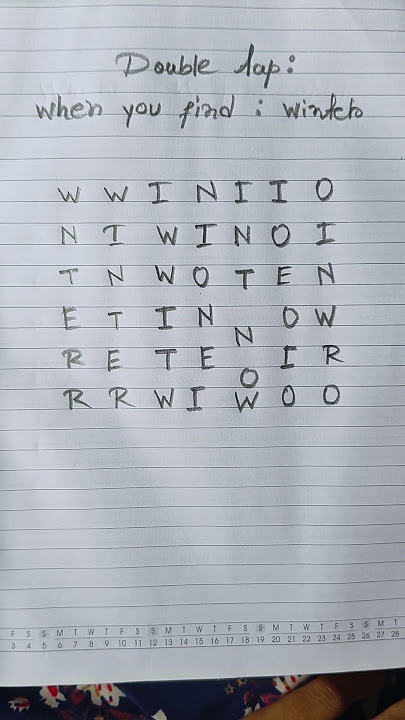 Double tap:
when you find : winter
W W I N I I O
N I W I N O I
T N W O T E N
E T I N N O W
R E T E O I R
R R W I W O O
F S S M T W T F S S M T W T F S S M T W T F S S M T
3 4 5 6 7 8 9 10 11 12 13 14 15 16 17 18 19 20 21 22 23 24 25 26 27 28